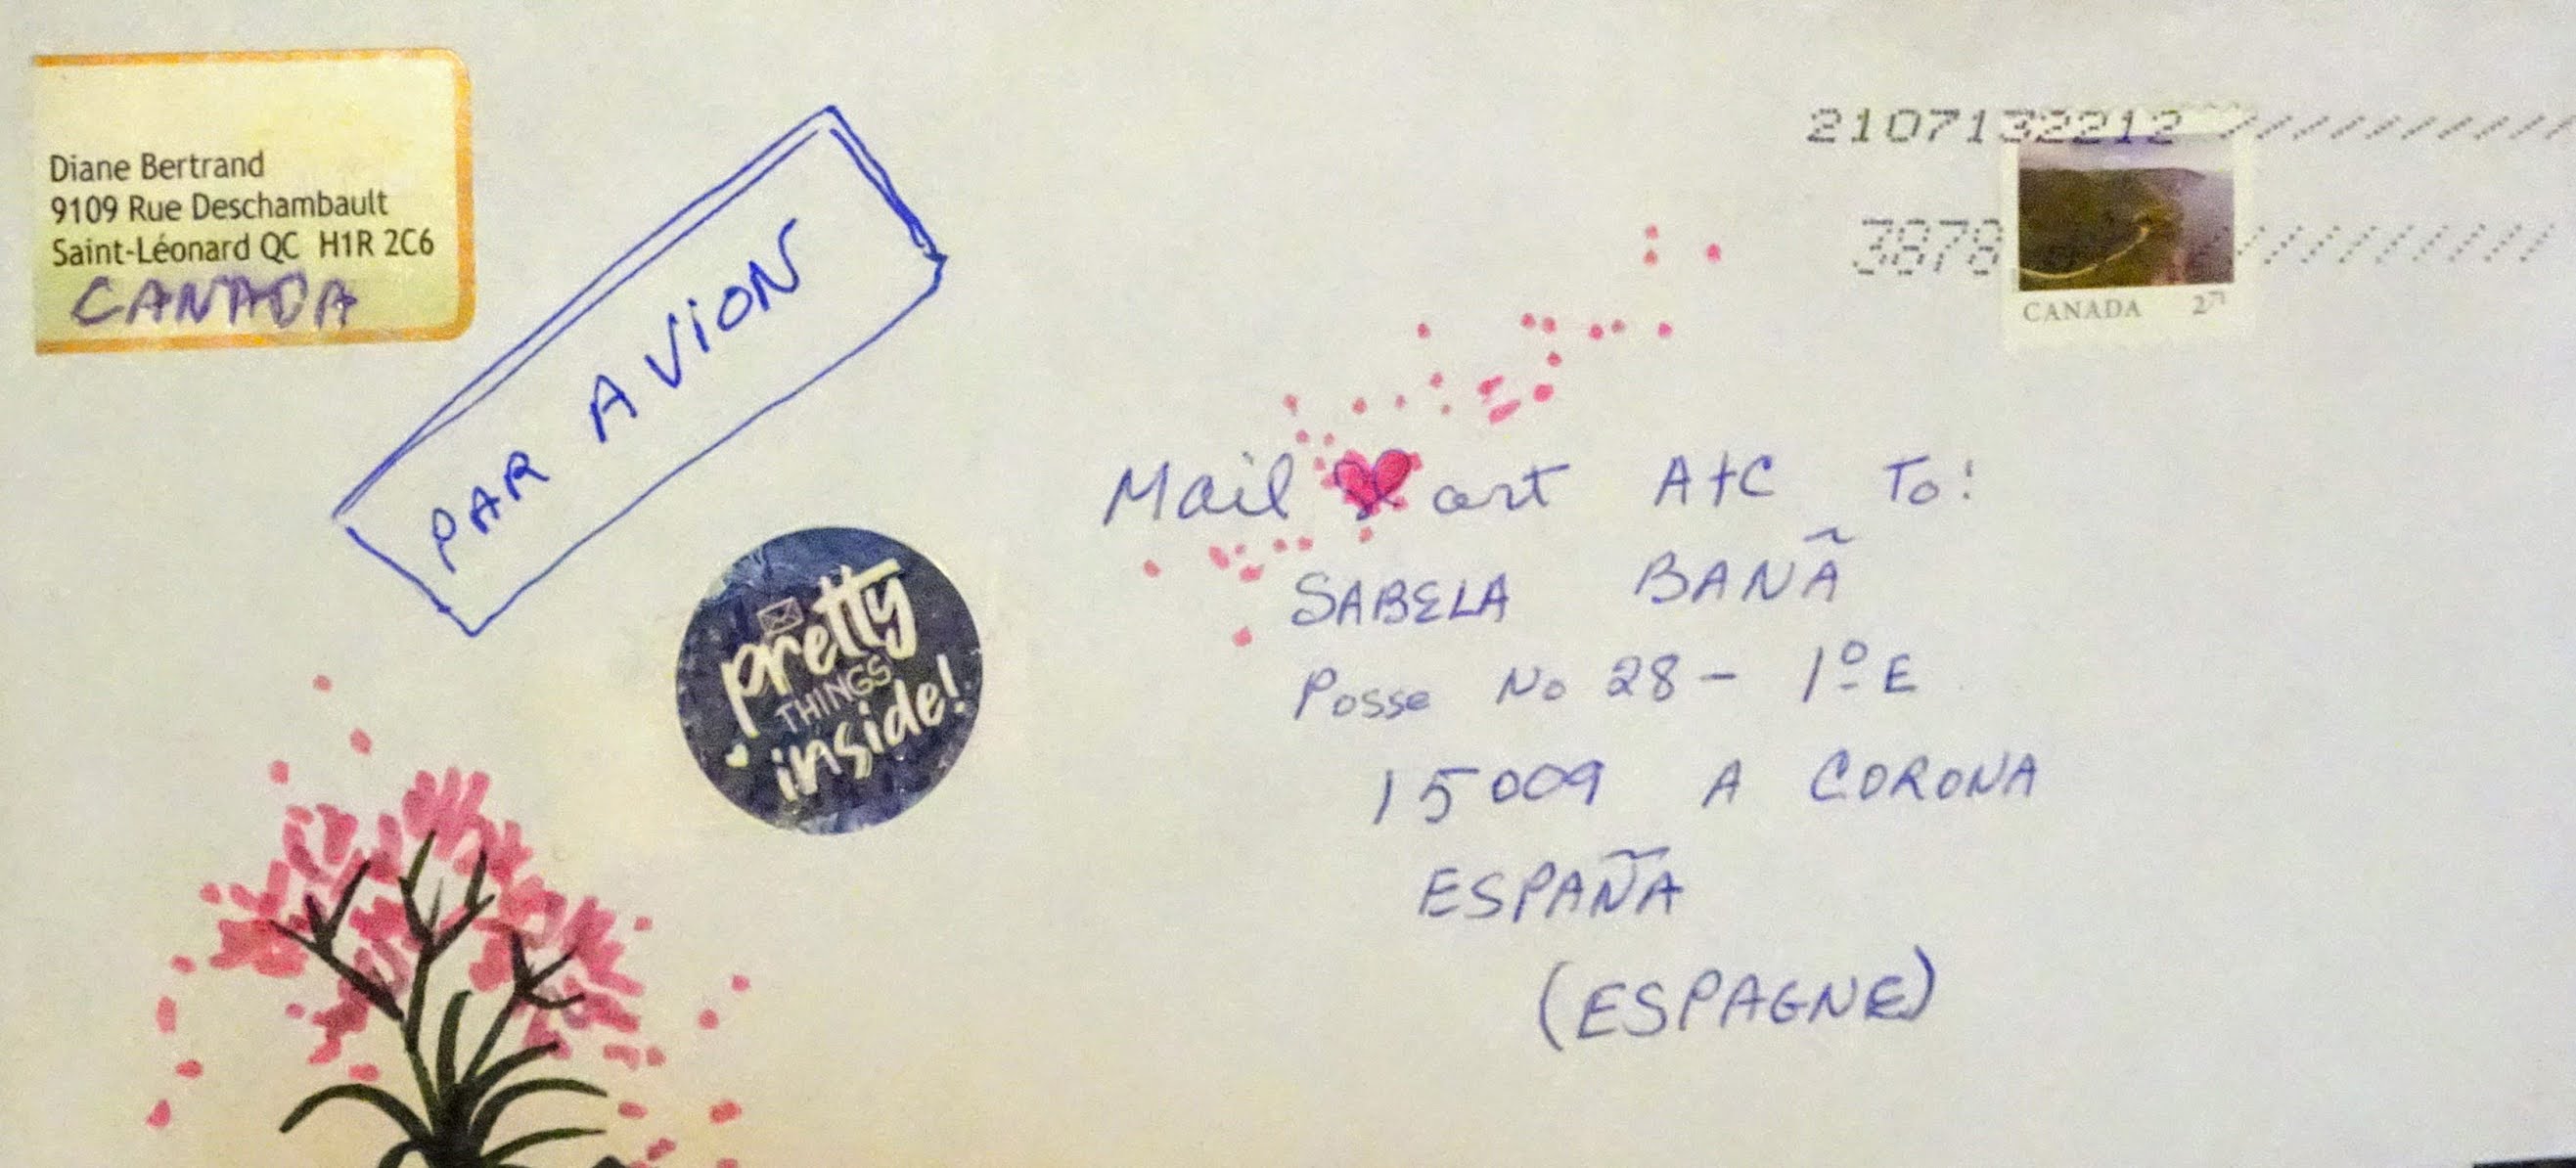 Diane Bertrand
9109 Rue Deschambault
Saint-Léonard QC H1R 2C6
CANADA
PAR AVION
pretty
THINGS
inside!
2107132212
3878
CANADA
Mail art A+C To:
SABELA BANÃ
Posse No 28 - 1º E
15009 A CORONA
ESPAÑA
(ESPAGNE)